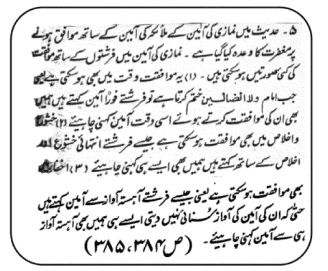 ۵۔ حدیث میں نمازی کی آمین کے ملائکہ کی آمین کے ساتھ موافق ہونے
پر مغفرت کا وعدہ کیا گیا ہے۔ نمازی کی آمین میں فرشتوں کے ساتھ موافقت
کی کئی صورتیں ہو سکتی ہیں۔ (۱) یہ موافقت وقت میں بھی ہو سکتی ہے یعنی
جب امام ولا الضالین ختم کرتا ہے تو فرشتے فوراً آمین کہتے ہیں ہمیں
بھی ان کی موافقت کرتے ہوئے اسی وقت آمین کہنی چاہیئے (۲) خشوع
و اخلاص میں بھی موافقت ہو سکتی ہے جیسے فرشتے انتہائی خشوع اور
اخلاص کے ساتھ کہتے ہیں ہمیں بھی ایسے ہی کہنی چاہیئے (۳) اخفا میں
بھی موافقت ہو سکتی ہے یعنی جیسے فرشتے آہستہ آواز سے آمین کہتے ہیں
حتیٰ کہ ان کی آمین کی آواز سنائی نہیں دیتی ایسے ہی ہمیں بھی آہستہ آواز
ہی سے آمین کہنی چاہیئے۔ (ص ۳۸۴، ۳۸۵)